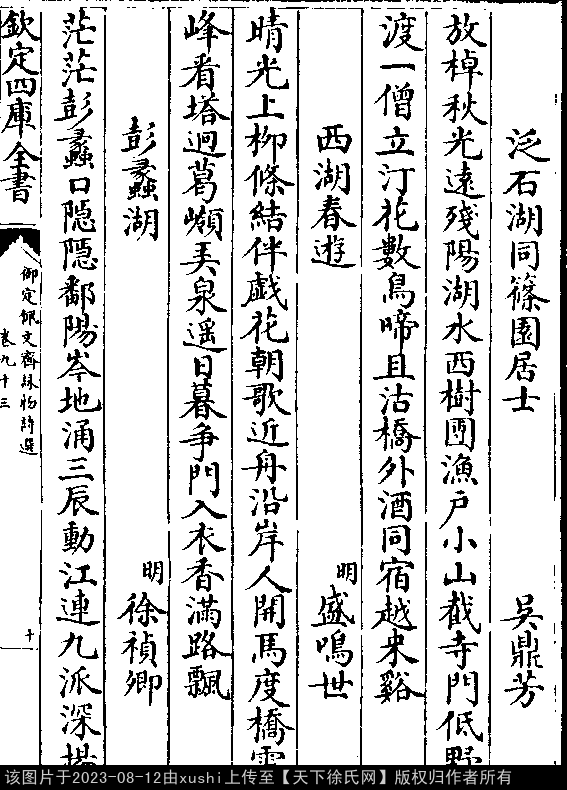 泛石湖同篠園居士 吳鼎芳
放棹秋光遠殘陽湖水西樹團漁戶小山截寺門低野
渡一僧立汀花數鳥啼且沽橋外酒同宿越來谿
西湖春遊 明 盛鳴世
晴光上柳條結伴戲花朝歌近舟沿岸人開馬度橋雲
峰看塔迥葛嶺弄泉遥日暮爭門入衣香滿路飄
彭蠡湖 明 徐禎卿
茫茫彭蠡口隠隠鄱陽岑地涌三辰動江連九派深揚
欽定四庫全書
御定佩文齋詠物詩選
卷九十三
十
该图片于2023-08-12由xushi上传至【天下徐氏网】版权归作者所有